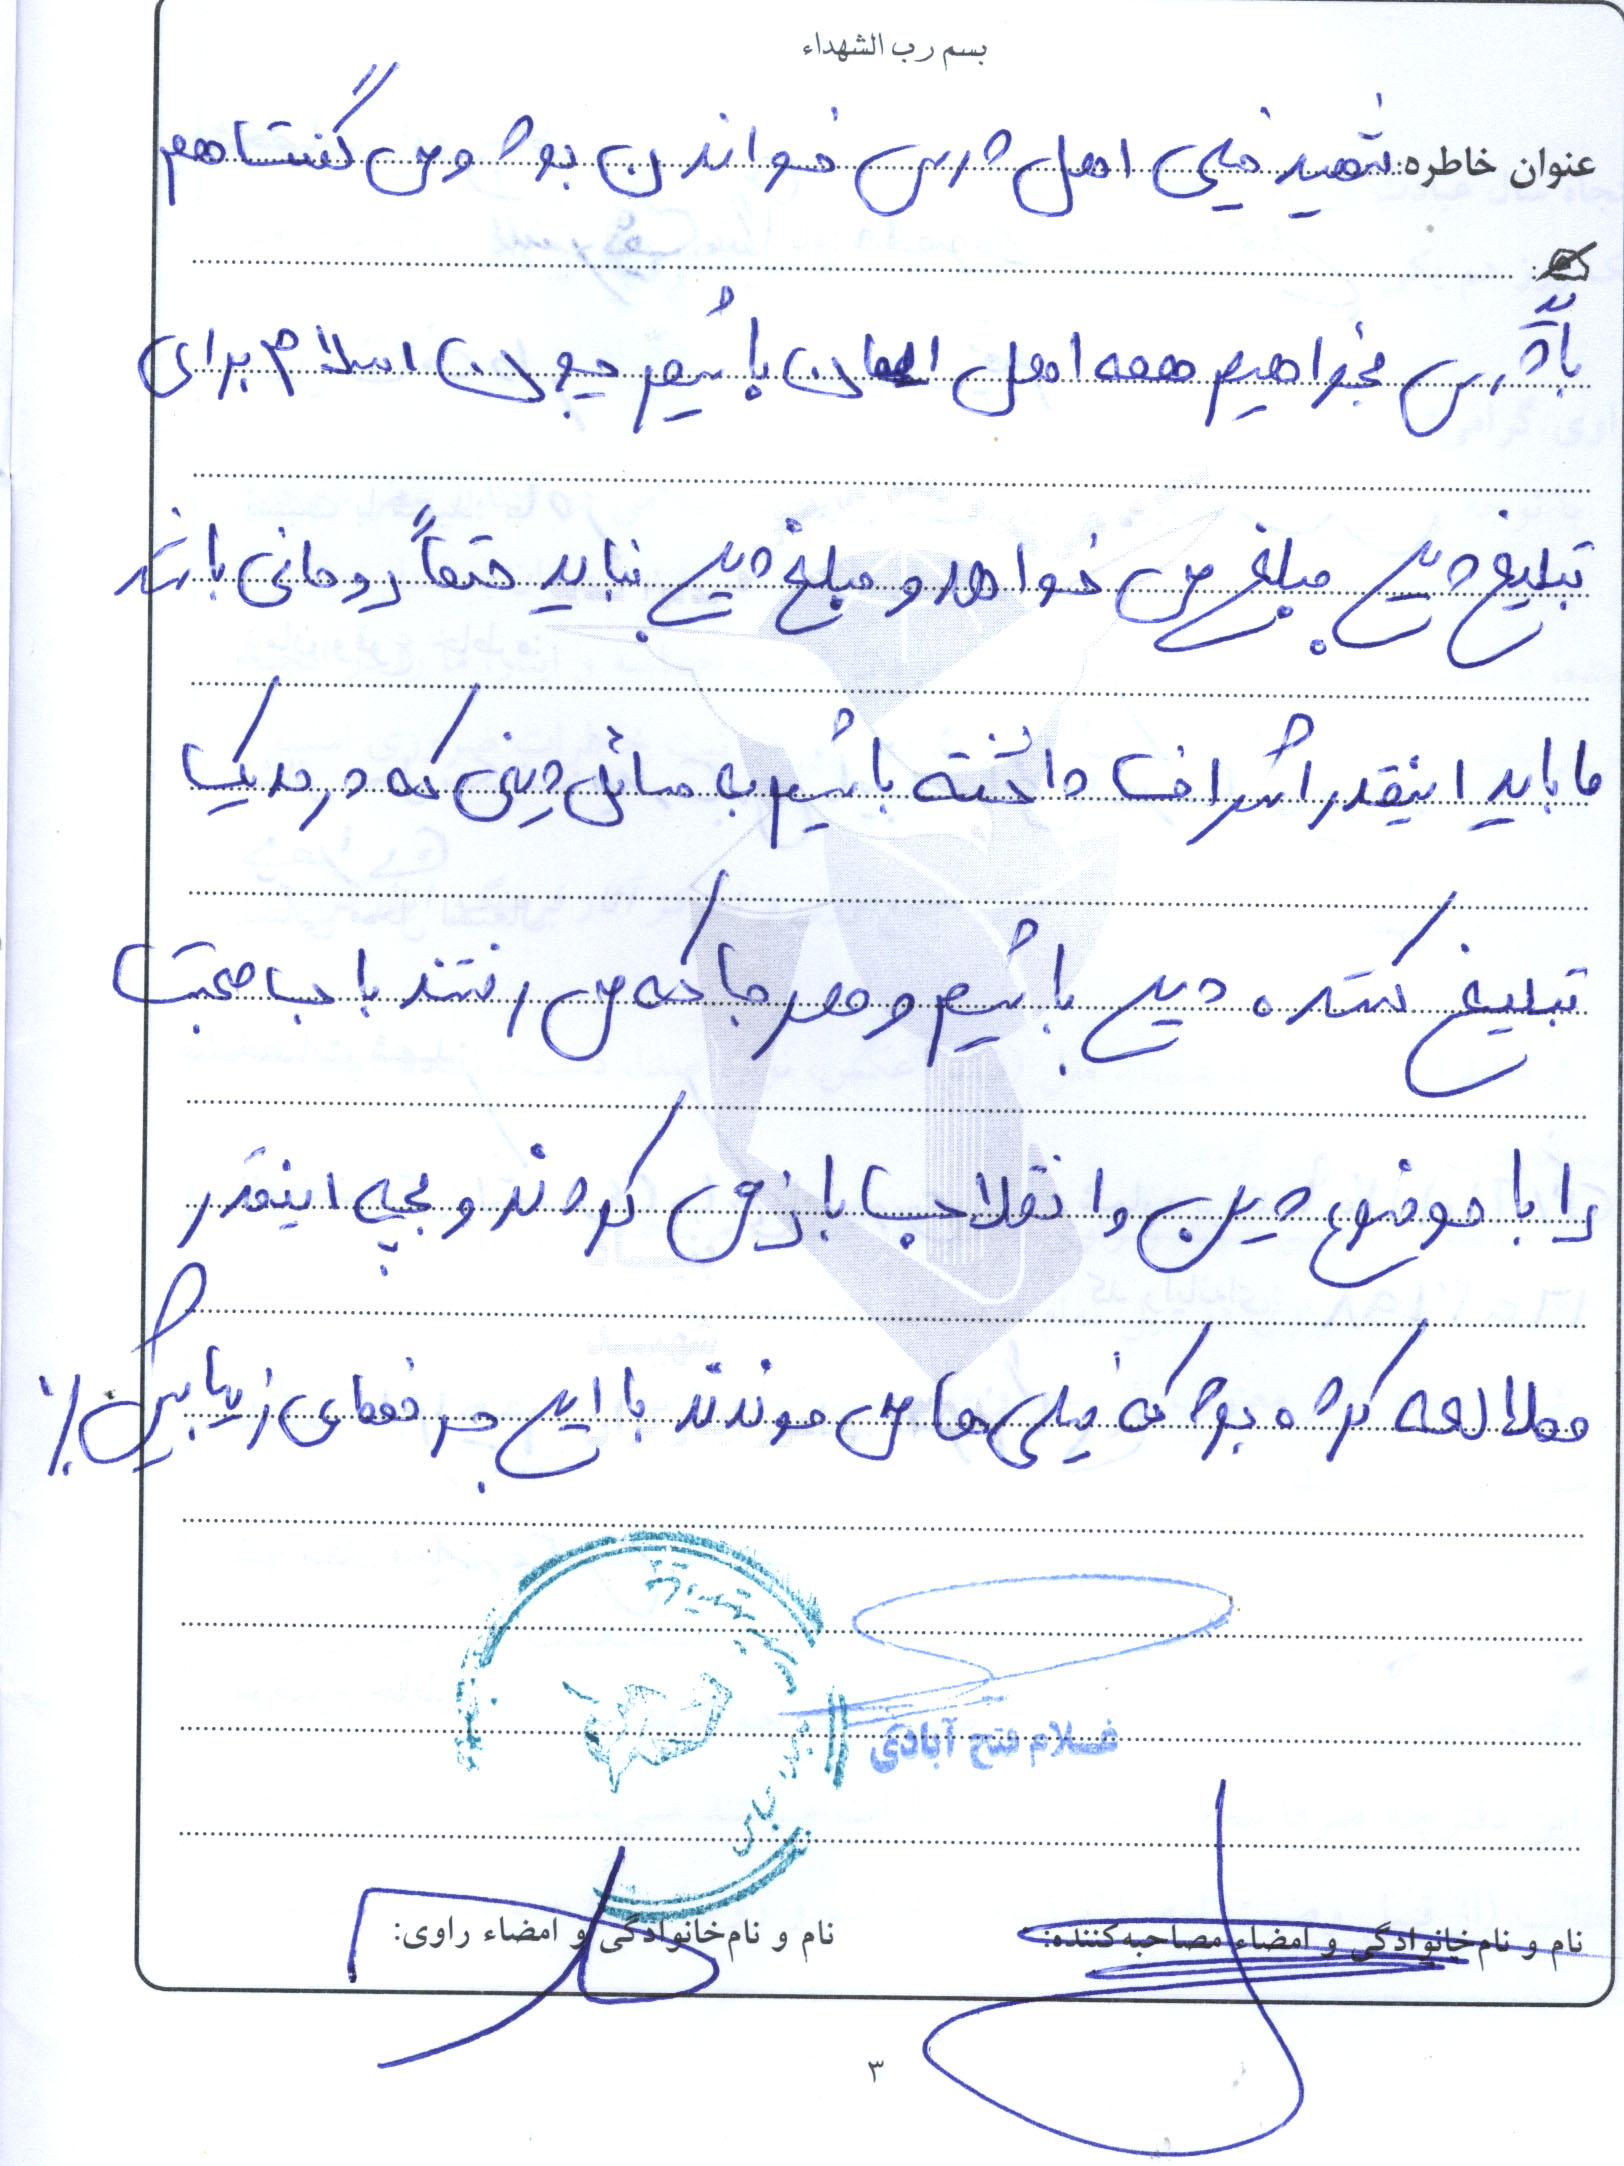 بسم رب الشهداء
عنوان خاطره: شهید خیلی اهل درس خواندن بود و می گفت هم
باید درس بخواهیم همه اهل ایمان باشیم چون اسلام برای
تبلیغ دین مبلغ می خواهد و مبلغ دین نباید حتماً روحانی باشد
ما باید اینقدر اشراف داشته باشیم به مسائل دینی که در حد یک
تبلیغ کننده دین باشیم و هر جا که می رفتند باب صحبت
را با موضوع دین و انقلاب باز می کردند و بچه اینقدر
مطالعه کرده بود که خیلی ها می موندند با این حرفهای زیباییش
غلام فتح آبادی
نام و نام‌خانوادگی و امضاء مصاحبه‌کننده:
نام و نام‌خانوادگی و امضاء راوی:
۳